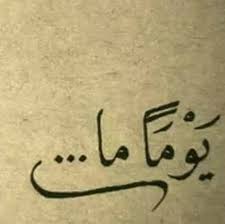 يَوْمَاً ما...